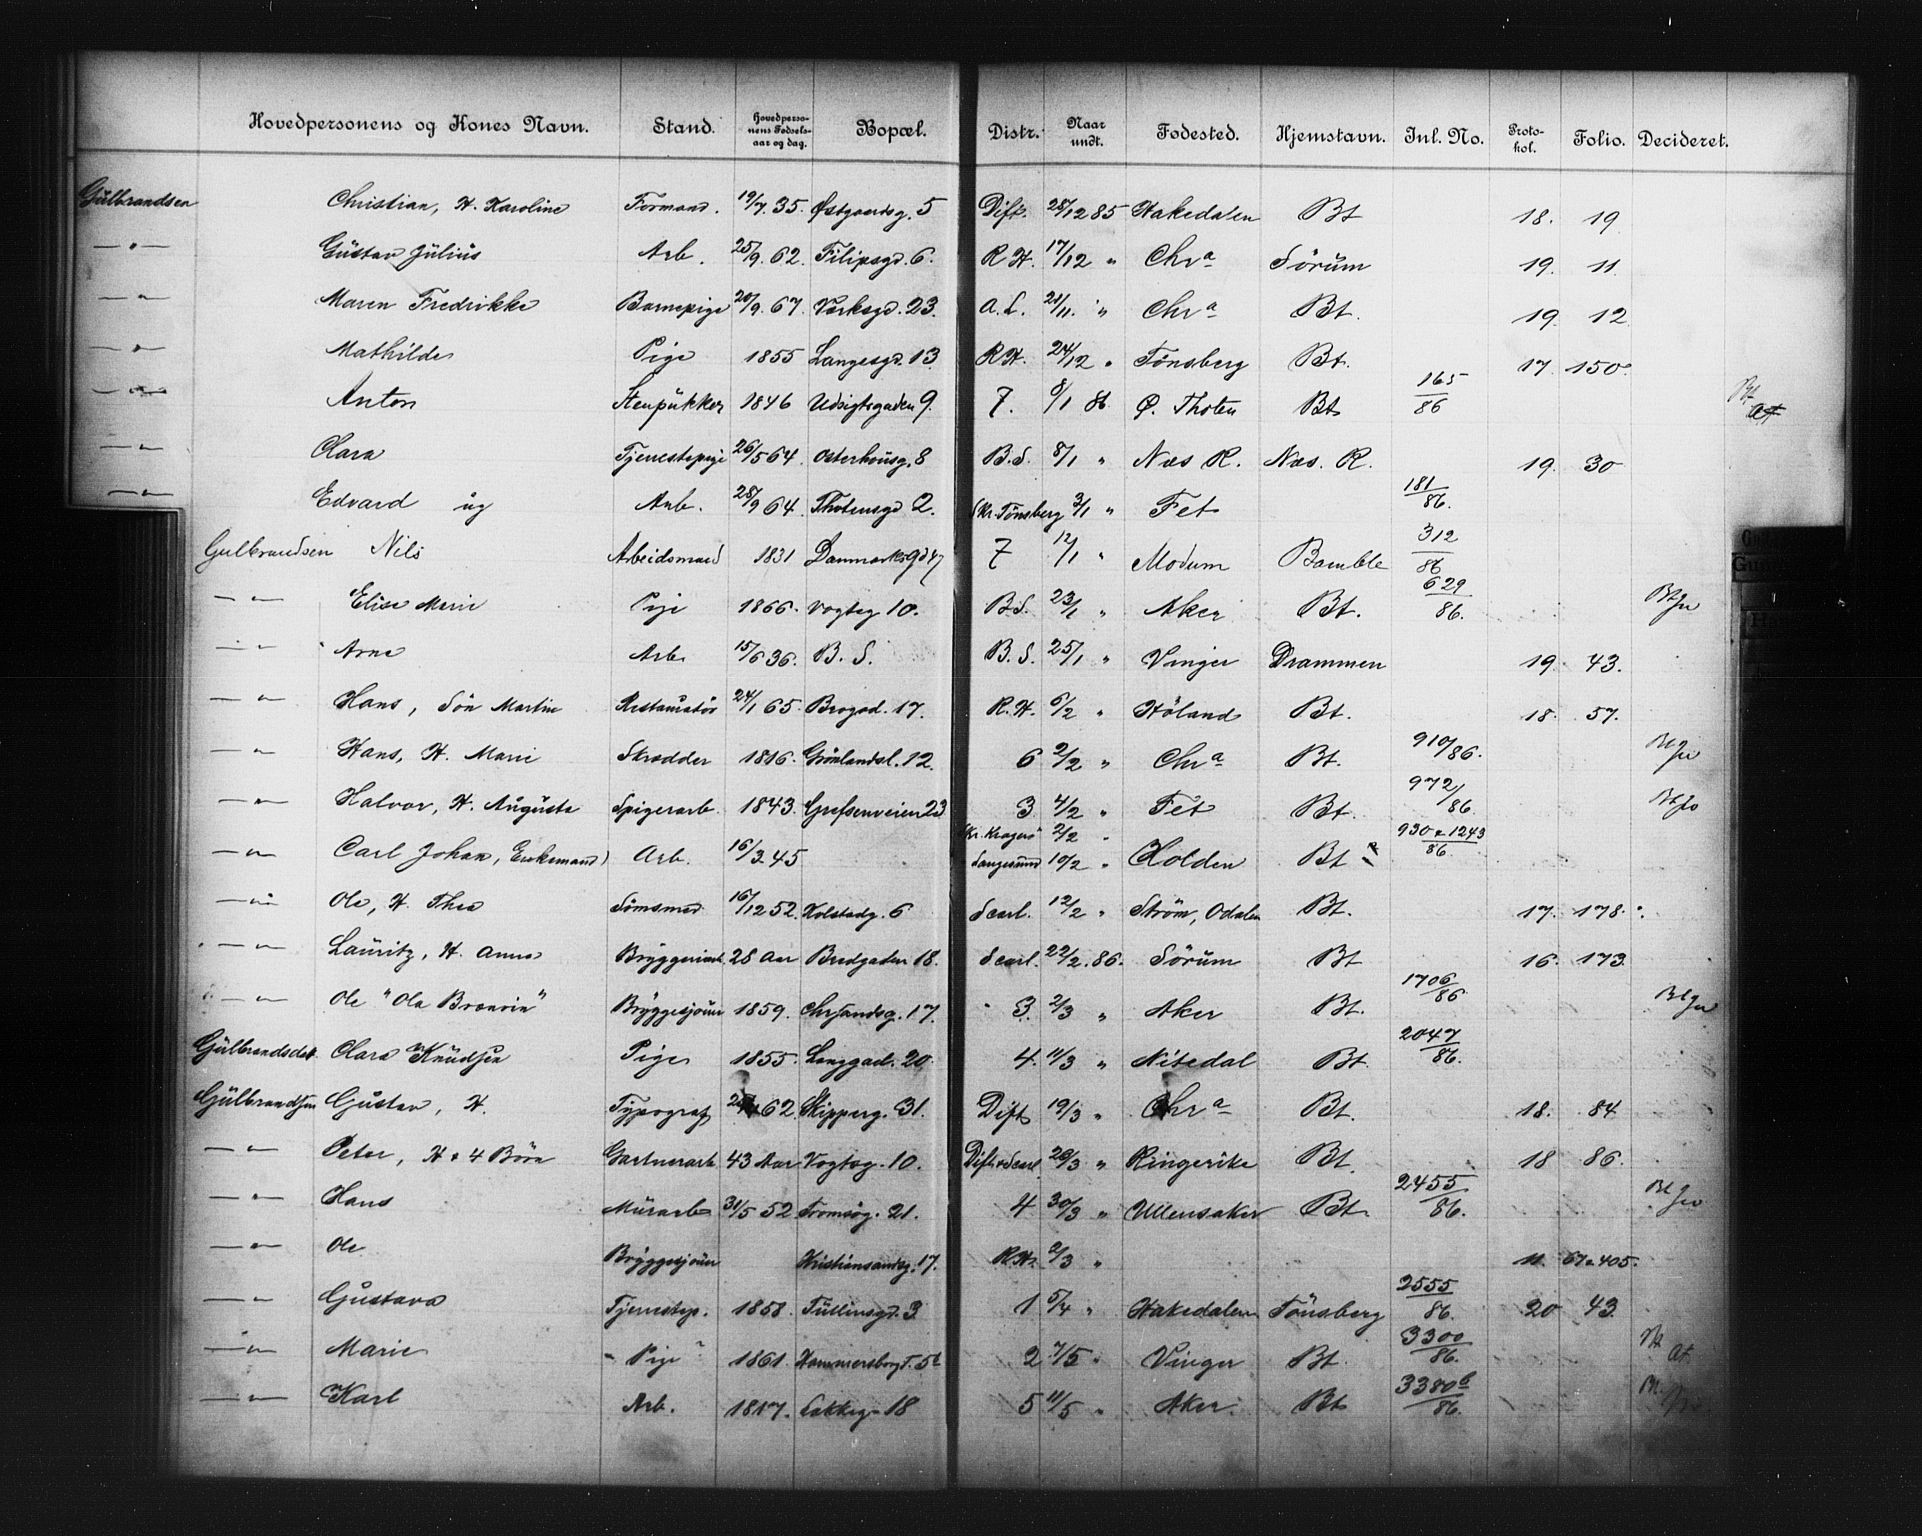 Hovedpersonens og Kones Navn. Stand. Hovedperso-nens Fødsels-aar og dag. Bopæl. Distr. Naar undt. Fødested. Hjemstavn. Inl. No. Proto-kol. Folio. Decideret.
Gulbrandsen Christian, H. Karoline Formand. 19/7. 35. Østgaardsg. 5 Dift. 28/12 85 Hakedalen Bt 18. 19
—"— Gustav Julius Arb. 25/9. 62. Filipsgd. 6. R.H. 17/12 " Chr a Sörum 19. 11.
—"— Maren Fredrikke Barnepige 20/9. 67. Værksgd. 23. A.S. 21/11. " Chr a Bt. 19. 12
—"— Mathilde Pige 1855 Langesgd. 13 R.H. 24/12 " Tönsberg Bt. 17. 150.
—"— Anton Stenpukker 1846 Udsigtsgaden 9. 7. 8/1 86. Ø. Thoten Bt 165/86 Bt At
—"— Clara Tjenestepige 26/5 64. Osterhausg. 8 B.S. 8/1 " Næs R. Næs. R. 19. 30
—"— Edvard ug Arb. 28/9 64. Thotensgd 2. Skr. Tönsberg 3/1 " Fet 181/86.
Gulbrandsen Nils Arbeidsmand 1831 Danmarksgd 47 7 12/1 " Modum Bamble 312/86
—"— Elise Marie Pige 1866. Vogtsg 10. B.S. 23/1 " Aker Bt. 629/86. Bt
—"— Arne Arb. 15/6 36. B.S. B.S. 25/1 " Vinger Drammen 19. 43.
—"— Hans, Sön Martin Restauratör 24/1 65. Brogad. 17. R.H. 6/2 " Höland Bt. 18. 57.
—"— Hans, H. Marie Skrædder 1816. Grönlandsl. 12. 6 2/2 " Chr a Bt. 910/86. Bt
—"— Halvor, H. Augusta Spigerarb. 1843. Grefsenveien 23 3 4/2 " Fet Bt. 972/86. Bt
—"— Carl Johan, Enkemand Arb. 16/3 45 Skr. Kragerö 2/2 " Langesund 10/2 " Holden Bt ? 930 & 1243/86.
—"— Ole, H. Thea Sömsmed 16/12 52. Holstadg. 6 Scarl. 12/2 " Ström, Odalen Bt. 17. 178.
—"— Lauritz, H. Anna Bryggeriarb. 28 Aar Bredgaden 18. Scarl. 22/2. 86. Sörum Bt 16. 173.
—"— Ole "Ola Brænvin" Bryggesjouer 1859. Chrsandsg. 17. 3. 2/3 " Aker Bt. 1706/86 Bt
Gulbrandsdat. Clara Knudsen Pige 1855. Langgad. 20. 4. 11/3 " Nitedal Bt. 2047/86.
Gulbrandsen Gustav, H. Typograf 62. Skipperg. 31. Dift 19/3 " Chr a Bt. 18. 84
—"— Peter, H. & 4 Börn Gartnerarb. 43 Aar Vogtsg. 10. Dift. & Scarl 26/3 " Ringerike Bt. 18 86.
—"— Hans Murarb. 31/5 52 Tromsög. 21. 4 30/3 " Ullensaker Bt. 2455/86. Bt
—"— Ole Bryggesjouer Kristiansandsg. 17. R.H. 2/3 " 11. 67 & 405.
—"— Gustava Tjenestep. 1858. Tullinsgd. 3 1 5/4 " Hakedalen Tönsberg 2555/86. 20 43.
—"— Marie Pige 1861. Hammersborg T. 5b 2 7/5 " Vinger Bt. 3300/86. Bt At
—"— Karl Arb. 1817. Lakkeg. 18 5 11/5 " Aker. Bt 3380 b/86. Bt.